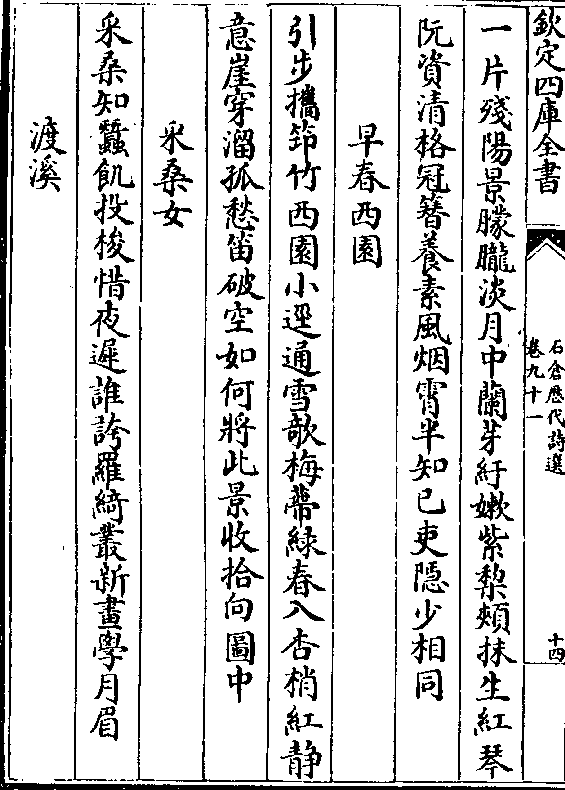 欽定四庫全書
石倉歷代詩選
卷九十一
十四
一片殘陽景朦朧淡月中蘭芽紆嫩紫梨頰抹生紅琴
阮資清格冠簪養素風烟霄半知已吏隱少相同
早春西園
引步攜筇竹西園小逕通雪欹梅蔕緑春入杏梢紅静
意崖穿溜孤愁笛破空如何將此景收拾向圖中
采桑女
采桑知蠶飢投梭惜夜遲誰誇羅綺叢新畫學月眉
渡溪